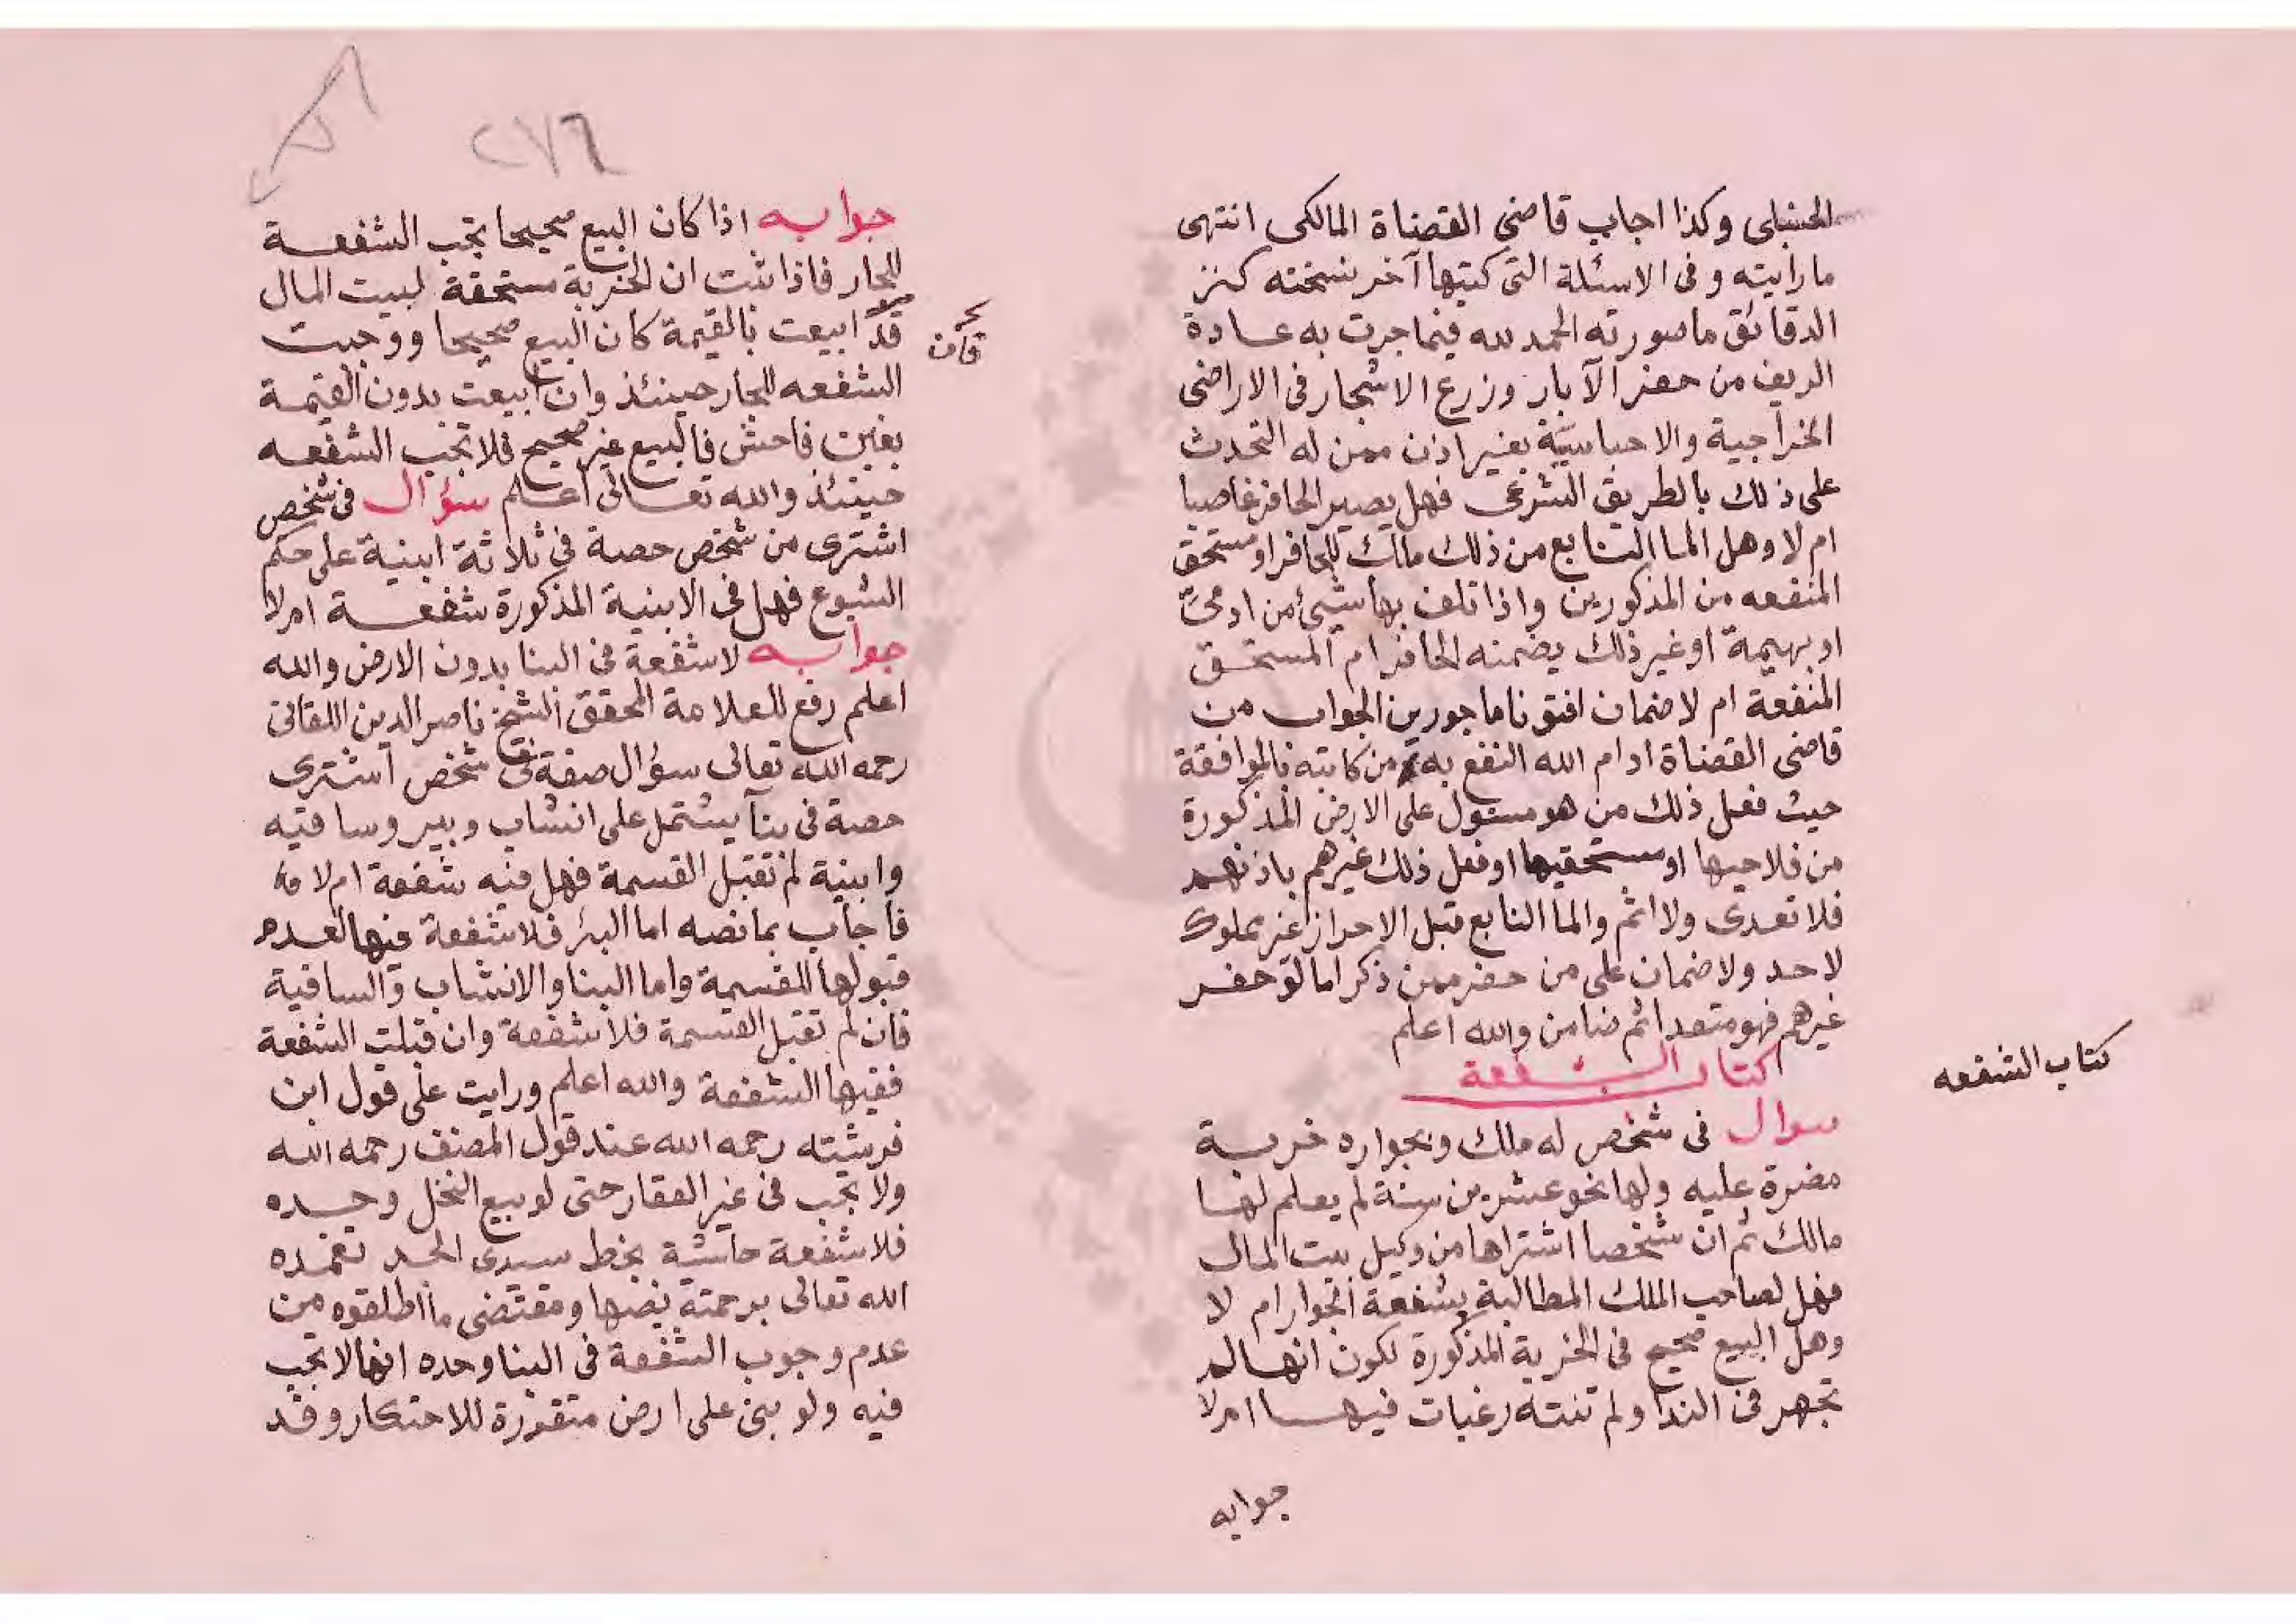 الحنبلى وكذا اجاب قاضى القضاة المالكى انتهى
ما رايته وفى الاسئلة التى كتبها آخر نسخته كنز
الدقائق ما صورته الحمد لله فيما جرت به عادة
الريف من حفر الآبار وزرع الاشجار فى الاراضى
الخراجية والاحباسية بغير اذن ممن له التحدث
على ذلك بالطريق الشرعى فهل يصير الحافر غاصبا
ام لا وهل الما النابع من ذلك مالك للحافر او مستحق
المنفعه من المذكورين واذا تلف بها شيئ من ادمى
او بهيمة او غير ذلك يضمنه الحافر ام المستحق
المنفعة ام لا ضمان افتونا ماجورين الجواب من
قاضى القضاة ادام الله النفع به من كاتبه بالموافقة
حيث فعل ذلك من هو مسئول على الارض المذكورة
من فلاحيها او مستحقيها او فعل ذلك غيرهم باذنهم
فلا تعدى ولا اثم والما النابع قبل الاحراز غير مملوك
لاحد ولا ضمان على من حفر ممن ذكر اما لو حفر
غيرهم فهو متعد اثم ضامن والله اعلم
كتاب الشفعة
كتاب الشفعه
سوال فى شخص له ملك وبجواره خربة
مضرة عليه ولها نحو عشرين سنة لم يعلم لها
مالك ثم ان شخصا اشتراها من وكيل بيت المال
فهل لصاحب الملك المطالبة بشفعة الجوار ام لا
وهل البيع صحيح فى الخربة المذكورة لكون انها لم
تجهر فى الندا ولم تنته رغبات فيها ام لا
جوابه
٢٧٦
جوابه اذا كان البيع صحيحا تجب الشفعة
للجار فاذا ثبت ان الخربة مستحقة لبيت المال
قد ابيعت بالقيمة كان البيع صحيحا ووجبت
الشفعه للجار حينئذ وان ابيعت بدون القيمة
بغبن فاحش فالبيع غير صحيح فلا تجب الشفعه
حينئذ والله تعالى اعلم سؤال فى شخص
اشترى من شخص حصة فى ثلاثة ابنية على حكم
الشيوع فهل فى الابنية المذكورة شفعة ام لا
جوابه لا شفعة فى البنا بدون الارض والله
اعلم رفع للعلامة المحقق الشيخ ناصر الدين اللقانى
رحمه الله تعالى سؤال صفة فى شخص اشترى
حصة فى بنآ يشتمل على انشاب وبير وساقيه
وابنية لم تقبل القسمة فهل فيه شفعة ام لا
فاجاب بما نصه اما البئر فلا شفعة فيها لعدم
قبولها للقسمة واما البنا والانشاب والساقية
فان لم تقبل القسمة فلا شفعة وان قبلت الشفعة
ففيها الشفعة والله اعلم ورايت على قول ابن
فرشته رحمه الله عند قول المصنف رحمه الله
ولا تجب فى غير العقار حتى لو بيع النخل وحده
فلا شفعة حاشية بخط سيدى الجد تغمده
الله تعالى برحمته نصها ومقتضى ما اطلقوه من
عدم وجوب الشفعة فى البنا وحده انها لا تجب
فيه ولو بنى على ارض متقررة للاحتكار وقد